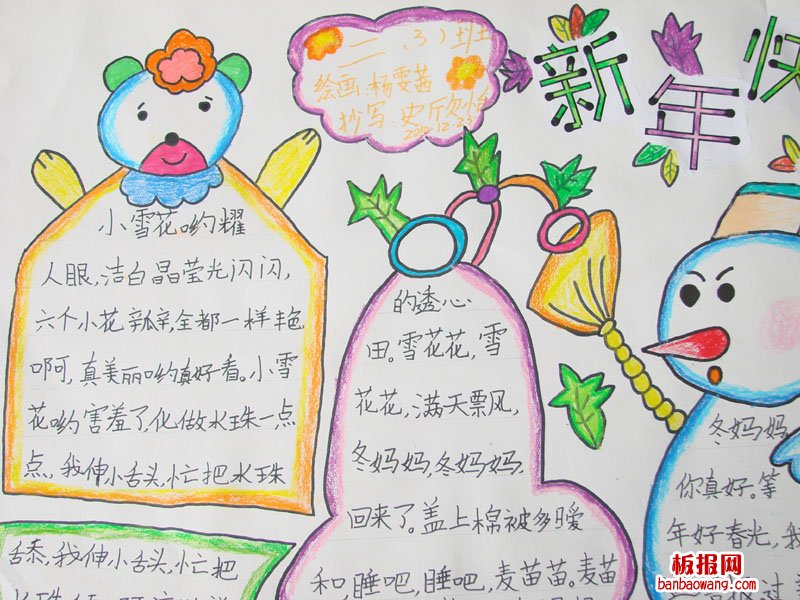 二（3）班
绘画:杨雯茜
抄写:史欣
2010.12.23
新年快
小雪花哟耀
人眼,洁白晶莹光闪闪,
六个小花瓣,全都一样艳
啊,真美丽哟真好看。小雪
花哟害羞了化做水珠一点
点,我伸小舌头,忙把水珠
舔,我伸小舌头,忙把
的透心
田。雪花花,雪
花花,满天飘,
冬妈妈,冬妈妈
回来了。盖上棉被多暖
和睡吧,睡吧,麦苗苗。麦苗
冬妈妈
你真好。等
年好春光,我
板报网
banbaowang.com